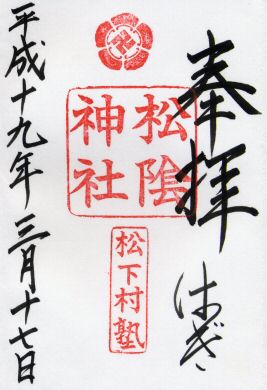 奉拝
はぎ
松陰
神社
松下村塾
平成十九年三月十七日